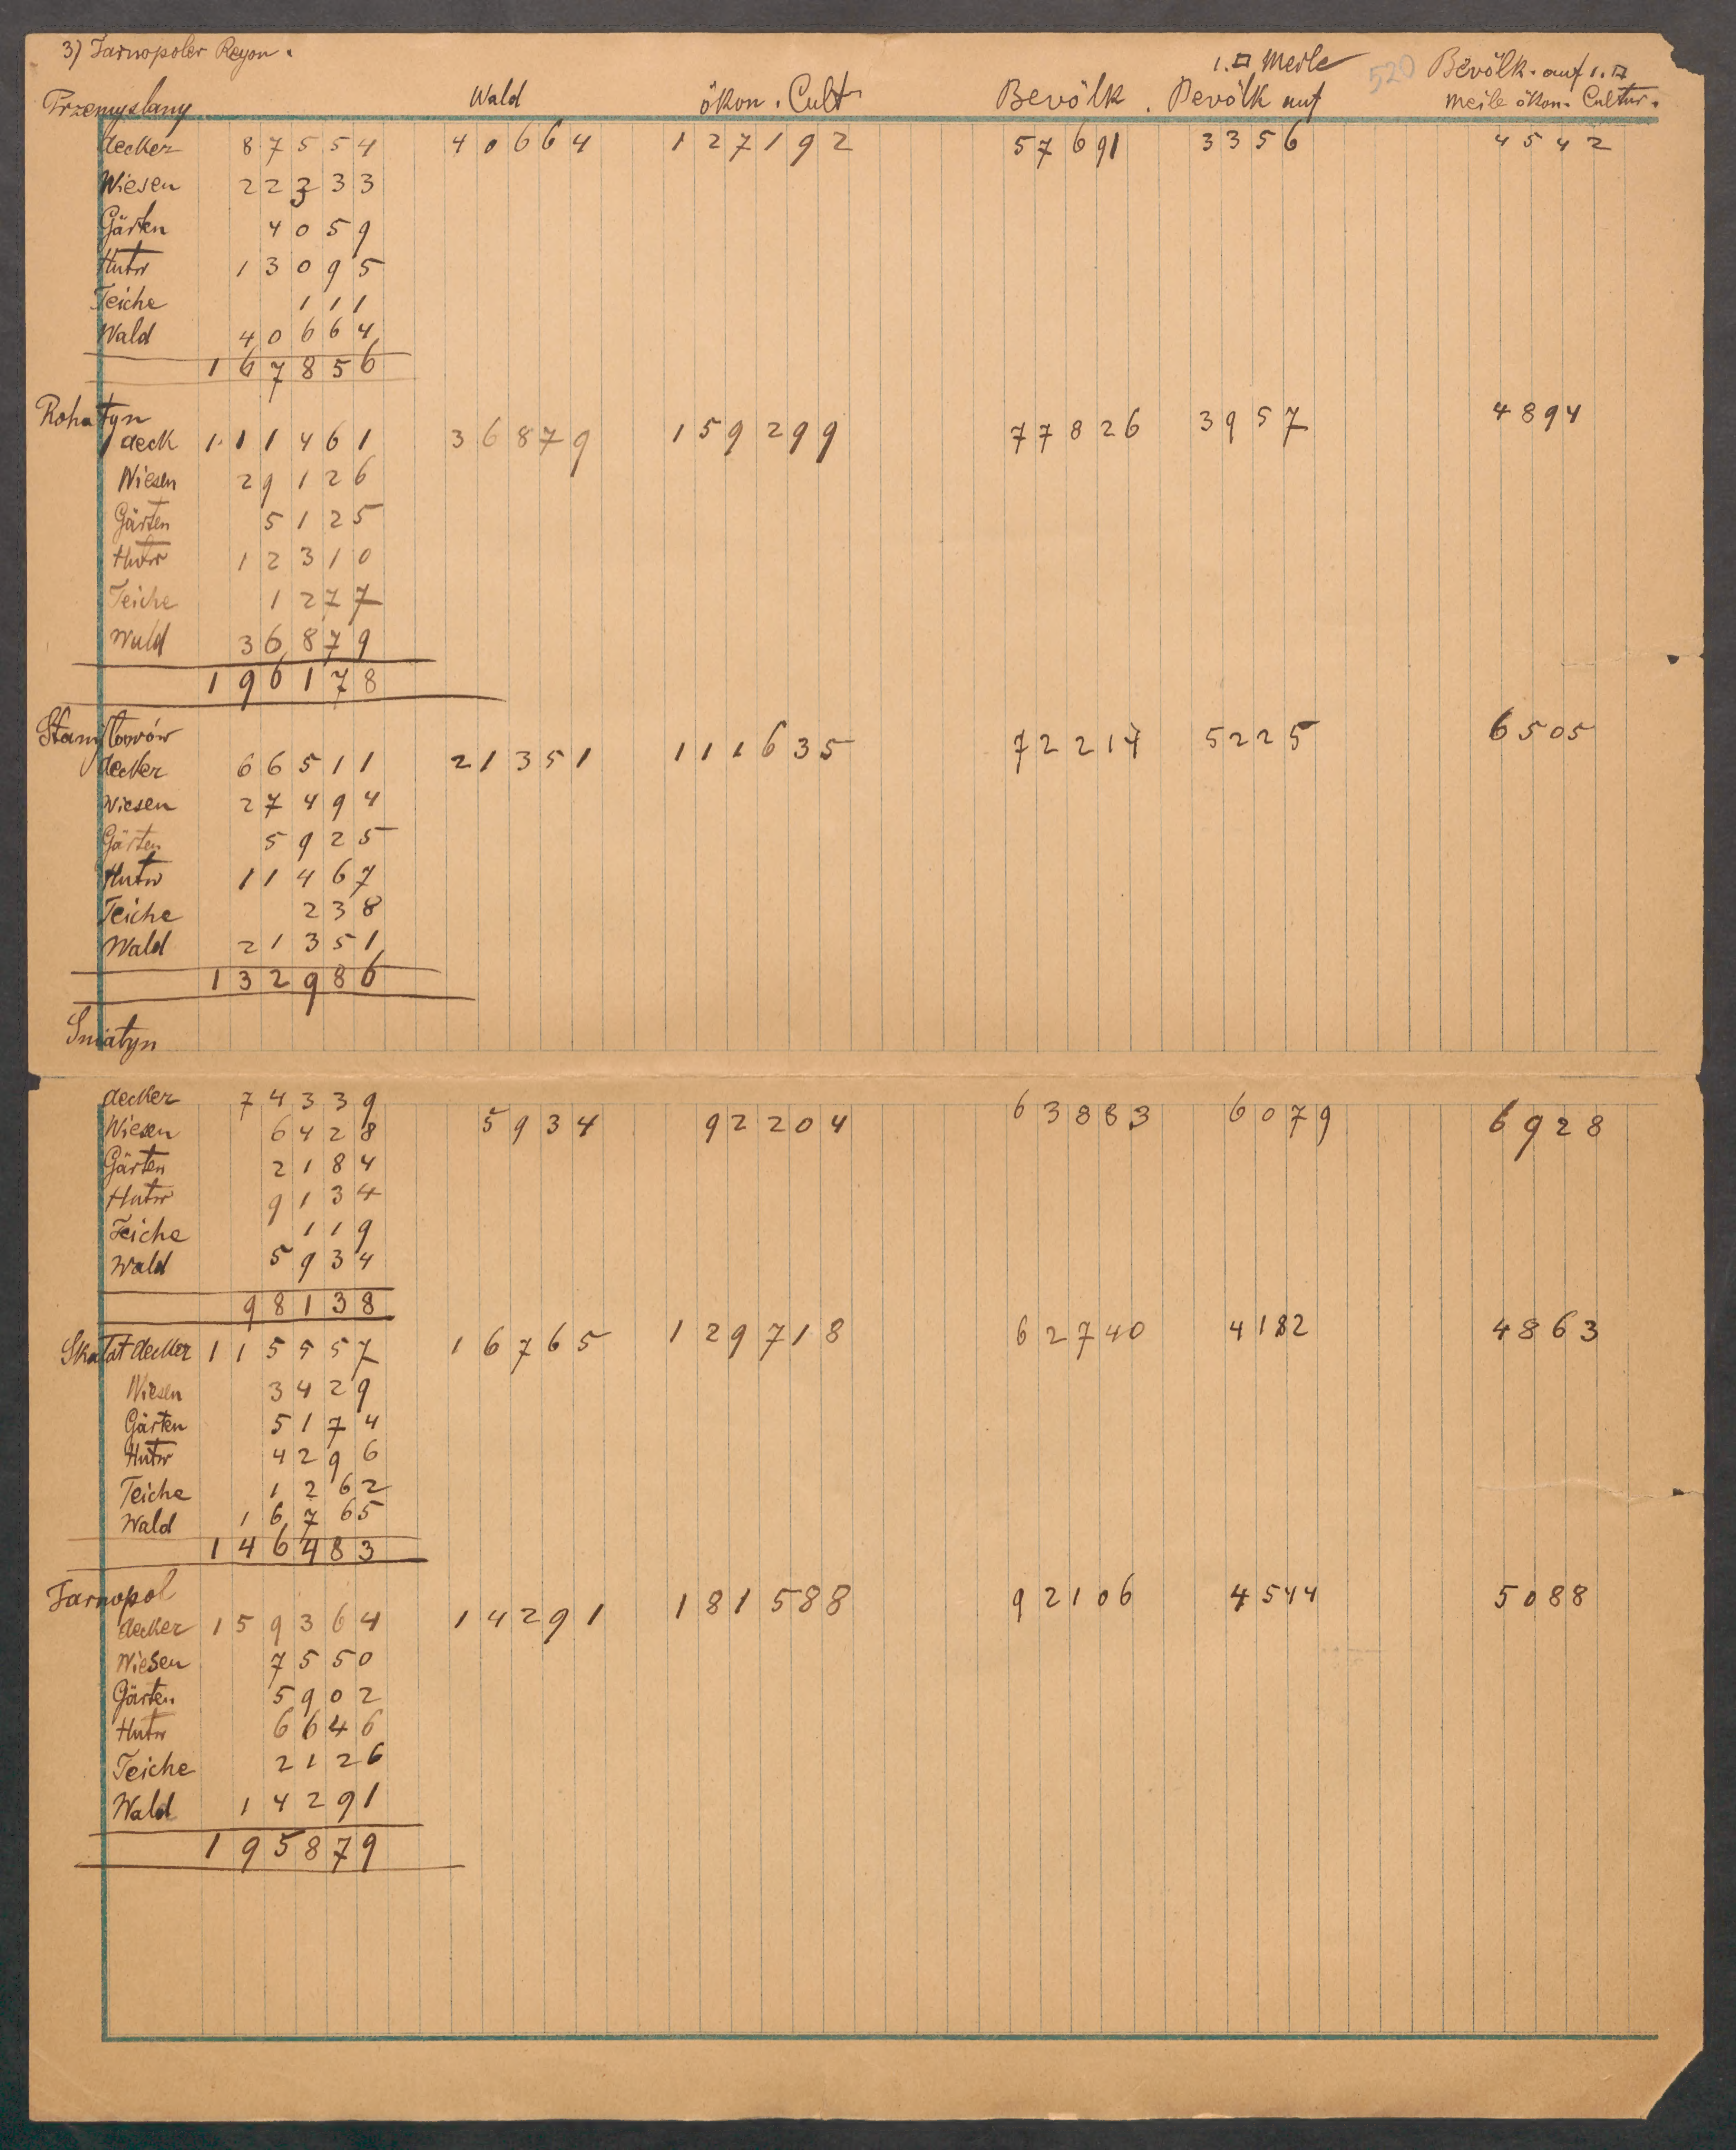 3) Tarnopoler Rayon.
1.□ Meile 520 Bevölk. auf 1.□
Przemyslany Wald ökon. Cult Bevölk. Bevölk auf Meile ökon. Cultur.
Aecker 87554 40664 127192 57691 3356 4542
Wiesen 22333
Gärten 4059
Hutw 13095
Teiche 111
Wald 40664
167856
Rohatyn
Aeck 111461 36879 159299 77826 3957 4894
Wiesen 29126
Gärten 5125
Hutw 12310
Teiche 1277
Wald 36879
196178
Stanisławów
Aecker 66511 21351 111635 72214 5225 6505
Wiesen 27494
Gärten 5925
Hutw 11467
Teiche 238
Wald 21351
132986
Sniatyn
Aecker 74339
Wiesen 6428 5934 92204 63883 6079 6928
Gärten 2184
Hutw 9134
Teiche 119
Wald 5934
98138
Skałat Aecker 115557 16765 129718 62740 4182 4863
Wiesen 3429
Gärten 5174
Hutw 4296
Teiche 1262
Wald 16765
146483
Tarnopol
Aecker 159364 14291 181588 92106 4544 5088
Wiesen 7550
Gärten 5902
Hutw 6646
Teiche 2126
Wald 14291
195879